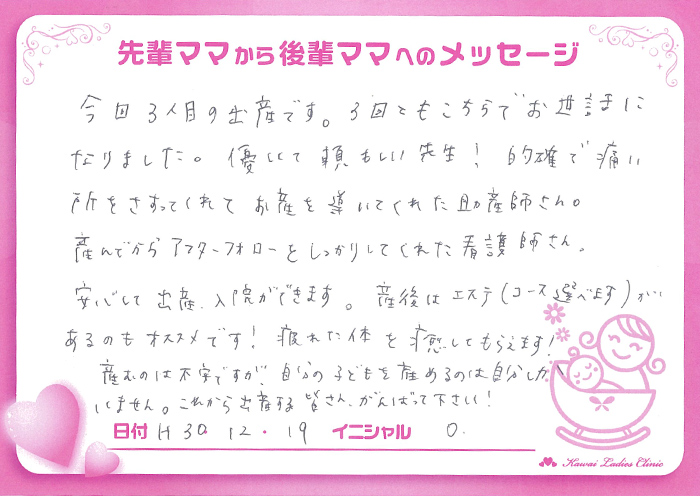 先輩ママから後輩ママへのメッセージ
今回3人目の出産です。3回ともこちらでお世話に
なりました。優しくて頼もしい先生！的確で痛い
所をさすってくれてお産を導いてくれた助産師さん。
産んでからアフターフォローをしっかりしてくれた看護師さん。
安心して出産、入院ができます。産後はエステ(コース選べます)が
あるのもオススメです！疲れた体を癒してもらえます！
産むのは不安ですが、自分の子どもを産めるのは自分しか
いません。これから出産する皆さん、がんばって下さい！
日付 H30・12・19 イニシャル O.
Kawai Ladies Clinic